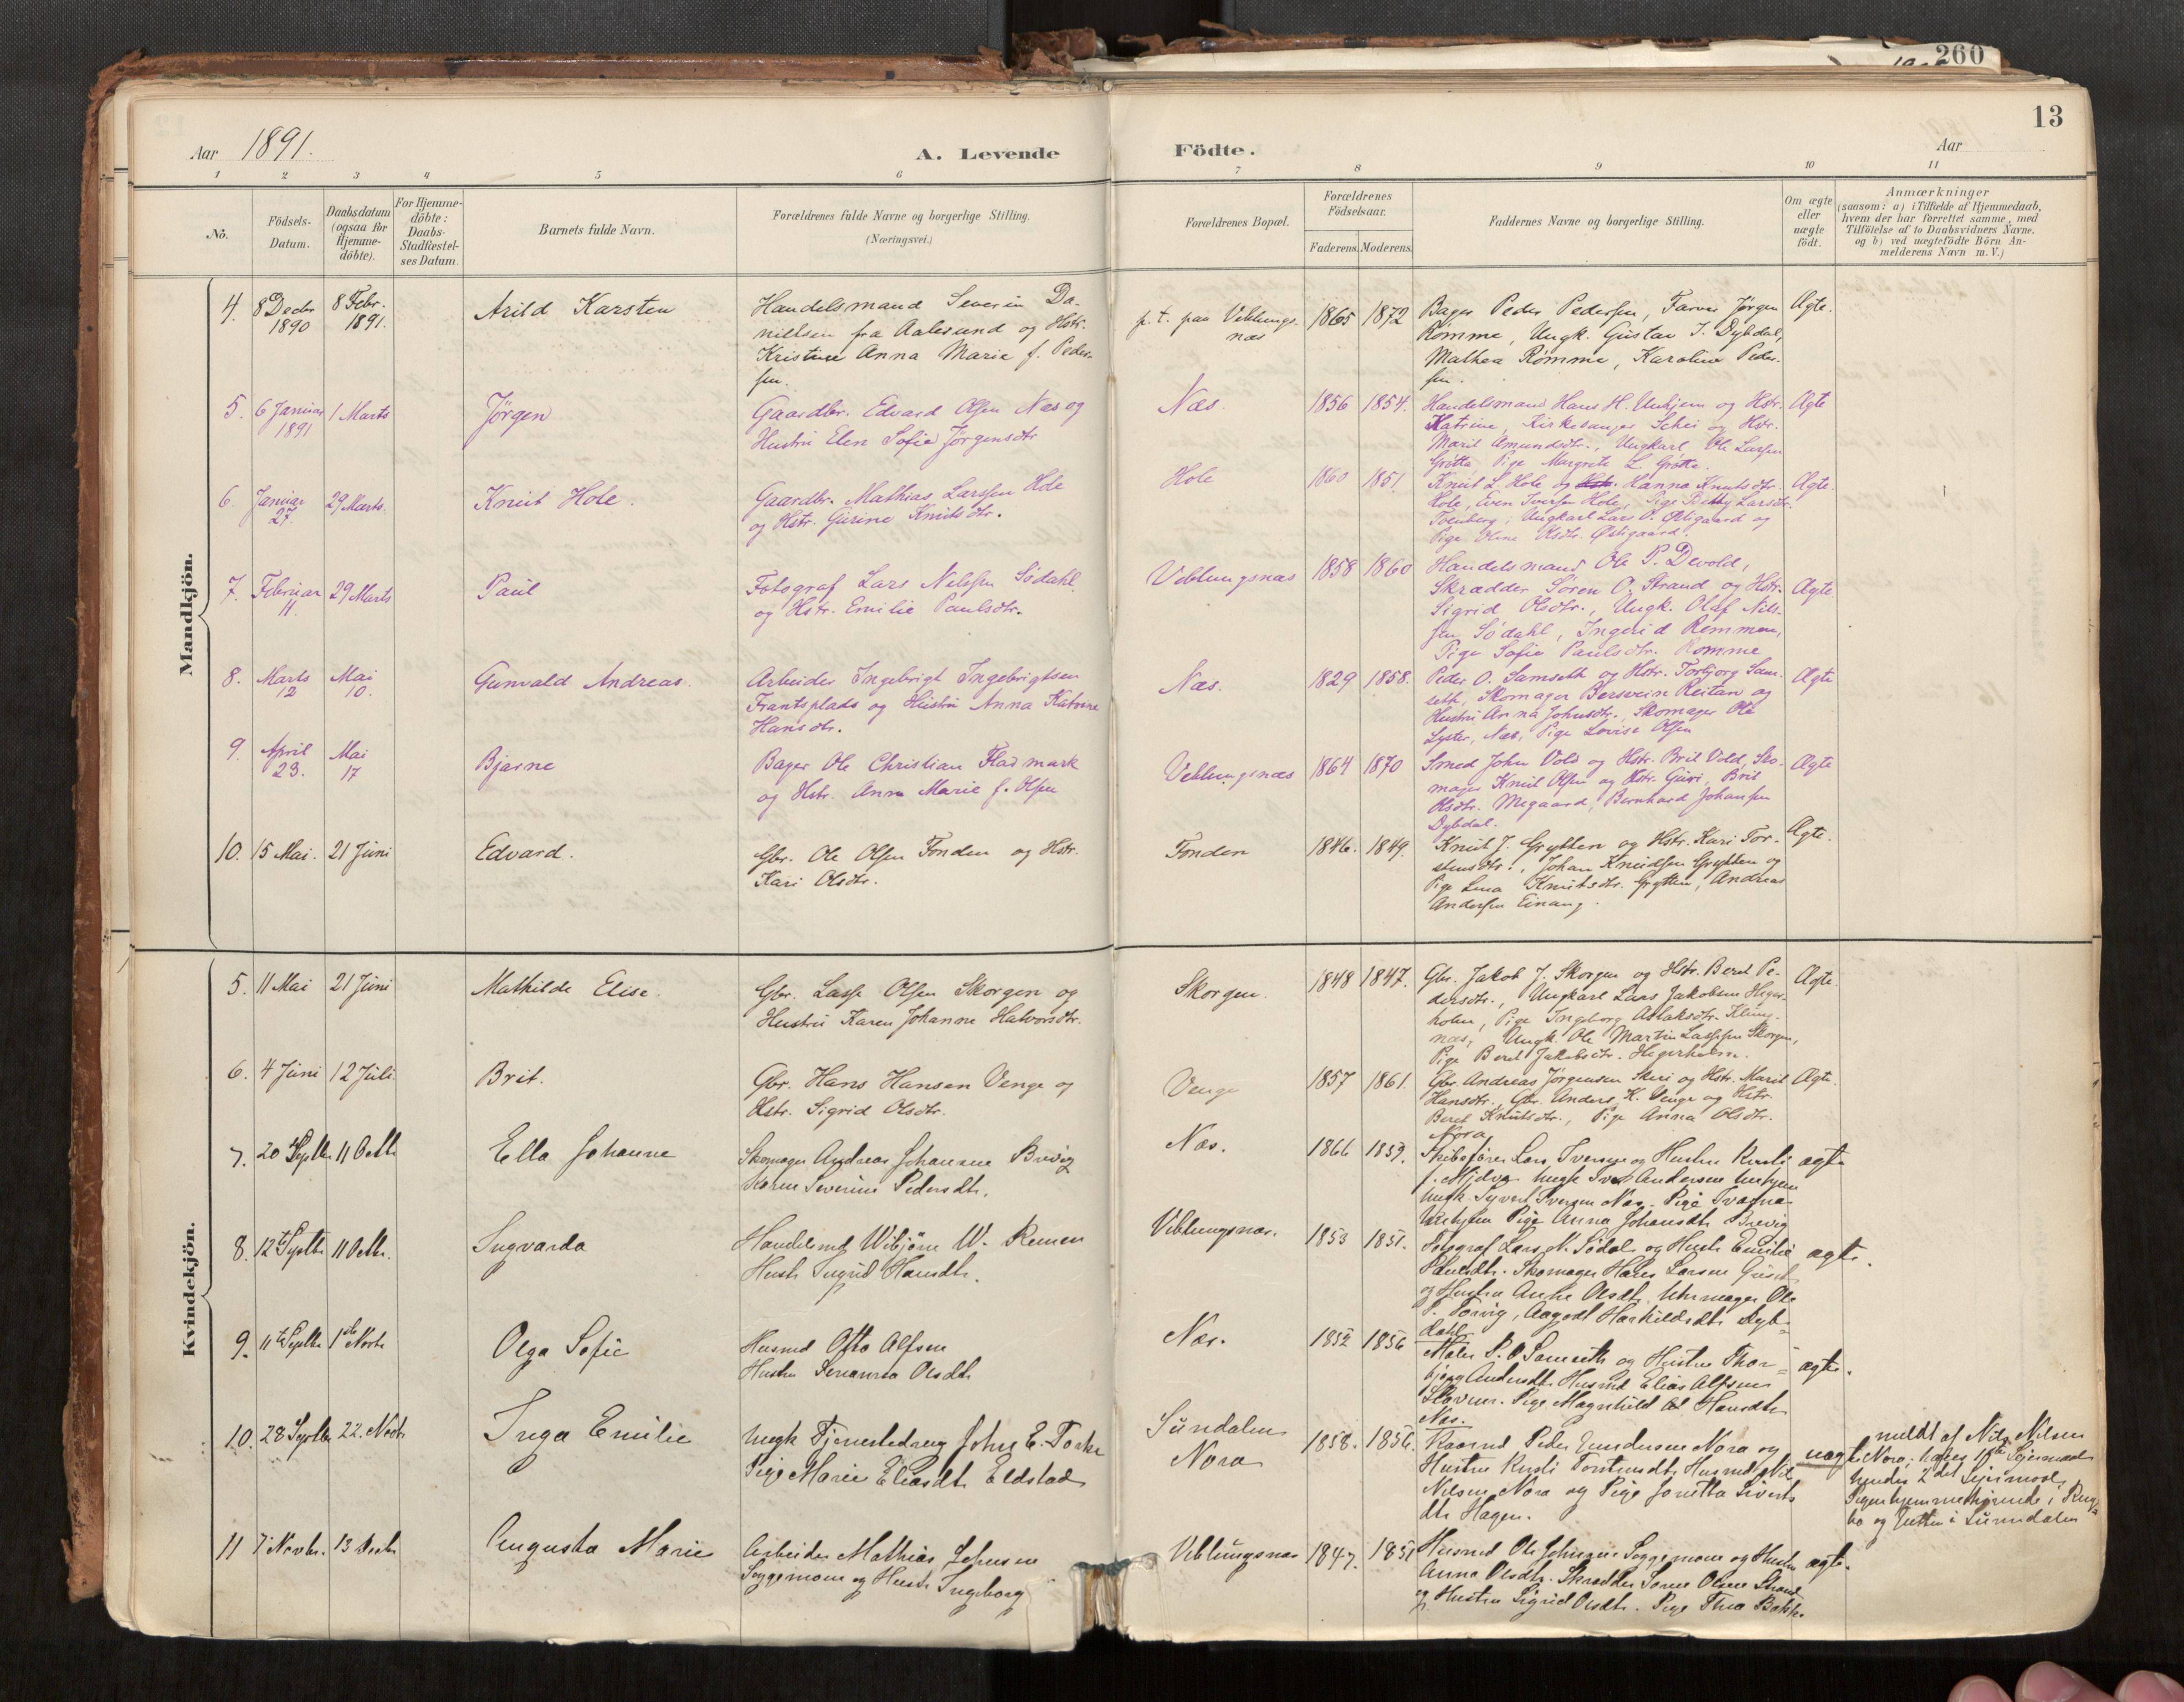 260
13
Aar 1891.
A. Levende Födte.
Aar
1 2 3 4 5 6 7 8 9 10 11
No.
Födsels-Datum.
Daabsdatum (ogsaa for Hjemme-döbte).
For Hjemme-döbte: Daabs-Stadfæstel-ses Datum.
Barnets fulde Navn.
Forældrenes fulde Navne og borgerlige Stilling.
(Næringsvei.)
Forældrenes Bopæl.
Forældrenes Födselsaar.
Faderens. Moderens.
Faddernes Navne og borgerlige Stilling.
Om ægte eller uægte födt.
Anmærkninger
(saasom: a) i Tilfælde af Hjemmedaab,
hvem der har forrettet samme, med
Tilföielse af to Daabsvidners Navne,
og b) ved uægtefödte Börn An-
melderens Navn m. V.)
Mandkjön.
4. 8 Decbr 1890 8 Febr. 1891. Arild Karsten
Handelsmand Severin Da-
nielsen fra Aalesund og Hstr.
Kristine Anna Marie f. Peder-
sen.
p. t. paa Veblungs-
næs
1865 1872
Bager Peder Pedersen, Farver Jørgen
Rømme, Ungk. Gustav I. Dybdal,
Mathea Rømme, Karoline Peder-
sen.
Ægte.
5. 6 Januar 1891 1 Marts Jörgen
Gaardbr. Edvard Olsen Næs og
Hustru Elen Sofie Jørgensdtr
Næs. 1856 1854.
Handelsmand Hans H. Unhjem og Hstr.
Katrine, Kirkesanger Schei og Hstr.
Marit Amundsdtr., Ungkarl Ole Larsen
Grötta, Pige Margrete L. Grötta.
Ægte
6. Januar 27. 29 Marts. Knut Hole.
Gaardbr. Mathias Larssen Hole
og Hstr. Gurine Knutsdtr.
Hole 1860 1851.
Knut L. Hole og Hanna Knutsdtr.
Hole, Even Iversen Hole, Pige Betty Larsdtr.
Tvenberg, Ungkarl Lars O. Östigaard og
Pige Olina Olsdtr. Östigaard.
Ægte.
7. Februar 11 29 Marts Paul
Fotograf Lars Nilssen Södahl
og Hstr. Emilie Paulsdtr.
Veblungsnæs 1858 1860
Handelsmand Ole P. Devold,
Skrædder Søren O. Strand og Hstr.
Sigrid Olsdtr., Ungk. Olaf Nils-
sen Södahl, Ingerid Remmem,
Pige Sofie Paulsdtr. Romme
Ægte
8. Marts 12 Mai 10. Gunvald Andreas.
Arbeider Ingebrigt Ingebrigtsen
Frantsplads og Hustru Anna Katrine
Hansdtr.
Næs. 1829 1858.
Peder O. Samseth og Hstr. Torbjorg Sam-
seth, Skomager Bersvein Reitan og
Hustru Anna Johnsdtr., Skomager Ole
Lyster, Næs, Pige Lovise Olsen
Ægte
9. April 23. Mai 17 Bjarne
Bager Ole Christian Fladmark
og Hstr. Anna Marie f. Olsen
Veblungsnæs 1864 1870
Smed John Vold og Hstr. Brit Vold, Sko-
mager Knut Olsen og Hstr. Guri, Brit
Olsdtr. Megaard, Bernhard Johansen
Dybdal.
Ægte
10. 15 Mai. 21 Juni Edvard.
Gbr. Ole Olsen Fonden og Hstr.
Kari Olsdtr.
Fonden 1846. 1849.
Knut J. Grytten og Hstr. Kari Tor-
stensdtr., Johan Knudsen Grytten og
Pige Lina Knutsdtr. Grytten, Andreas
Andersen Einang.
Ægte.
Kvindekjön.
5. 11 Mai 21 Juni Mathilde Elise.
Gbr. Lasse Olsen Skorgen og
Hustru Karen Johanne Halvorsdtr.
Skorgen. 1848 1847.
Gbr. Jakob J. Skorgen og Hstr. Beret Pe-
dersdtr., Ungkarl Lars Jakobsen Heger-
holm, Pige Ingeborg Aslaksdtr. Kling-
næs, Ungk. Ole Martin Lassesen Skorgen,
Pige Beret Jakobsdtr. Hegerholm.
Ægte.
6. 4 Juni 12 Juli. Brit.
Gbr. Hans Hansen Venge og
Hstr. Sigrid Olsdtr.
Venge 1857 1861.
Gbr. Andreas Jørgensen Skeri og Hstr. Marit
Hansdtr., Gbr. Anders K. Venge og Hstr.
Beret Knutsdtr., Pige Anna Olsdtr.
Nora
Ægte.
7. 20 Septbr 11 Octbr Ella Johanne
Skomager Andreas Johansen Brevig
Karen Severine Pedersdtr.
Næs. 1866 1859.
Skibsfører Lars Iversen og Hustru Kirsti
f. Mjelva Ungk Iver Andersen Unhjem
Ungk. Syvert Iversen Næs. Pige
Unhjem Pige Anna Johansdtr Brevig
ægte
8. 12te Septbr 11 Octbr. Ingvarda
Handelsmd Wibjörn W. Remen
Hustr Ingrid Hansdtr.
Veblungsnæs. 1853 1851.
Fotograf Lars N. Södal og Hustr Emilie
Paulsdtr. Skomager Hans Larsen Griset
og Hustru Anne Olsdtr. Uhrmager Ole
P. Torvig, Aagodt Haskildsdtr. Dyb-
dahl
ægte.
9. 11te Septbr 1ste Novbr Olga Sofie
Husmd Otto Alfsen
Hustru Olsdtr
Næs. 1852 1856
Maler P. O Samseth og Hustru Thor-
bjørg Andersdtr Husmd Elias Alfsen
Pige Magnhild Hansdtr
Næs.
ægte.
10. 28 Septbr 22. Novbr Inga Emilie
Ungk Tjenestedreng John E. Torke
Pige Marie Eliasdtr Eldstad
Sundalen
Nora
1858. 1856.
Peder Gundersen Nora og
Hustru Kirsti Husmd Nils
Nilsen Nora og Pige Jonetta Siverts
dtr Hagen.
uægte
meldt af Nils Nilsen
Nora; hans 1ste Leiermaal
hendes 2det Leiermaal,
Pigen hjemmehørende i
bo og Gutten i Sunndalen
11 7 Novbr. 13 Decbr Augusta Marie
Arbeider Mathias Johnsen
Soggemoen og Hustr Ingeborg
Veblungsnæs 1847. 1851
Husmd Ole Johnsen Soggemoen og Hustru
Anna Olsdtr. Skrædder Søren Olsen Strand
og Hustru Sigrid Olsdtr. Pige Thea
ægte.